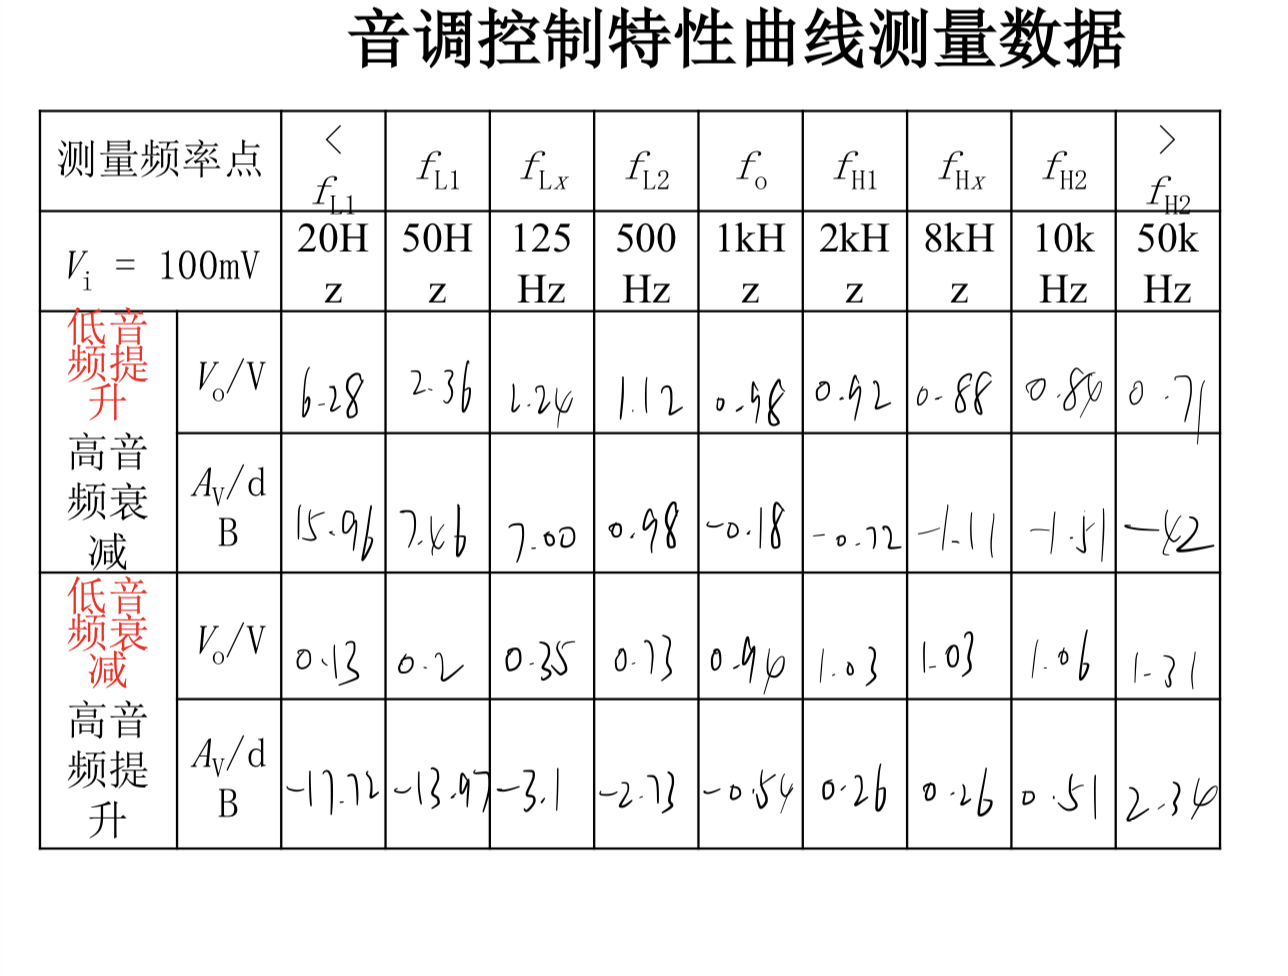 音调控制特性曲线测量数据
测量频率点 < fL1 fL1 fLx fL2 fo fH1 fHx fH2 > fH2
Vi = 100mV 20Hz 50Hz 125Hz 500Hz 1kHz 2kHz 8kHz 10kHz 50kHz
低音频提升
高音频衰减
Vo/V 6.28 2.36 1.24 1.12 0.98 0.92 0.88 0.84 0.71
AV/dB 15.96 7.46 7.00 0.98 -0.18 -0.72 -1.11 -1.51 -42
低音频衰减
高音频提升
Vo/V 0.13 0.2 0.35 0.73 0.94 1.03 1.03 1.06 1.31
AV/dB -17.72 -13.97 -3.1 -2.73 -0.54 0.26 0.26 0.51 2.34